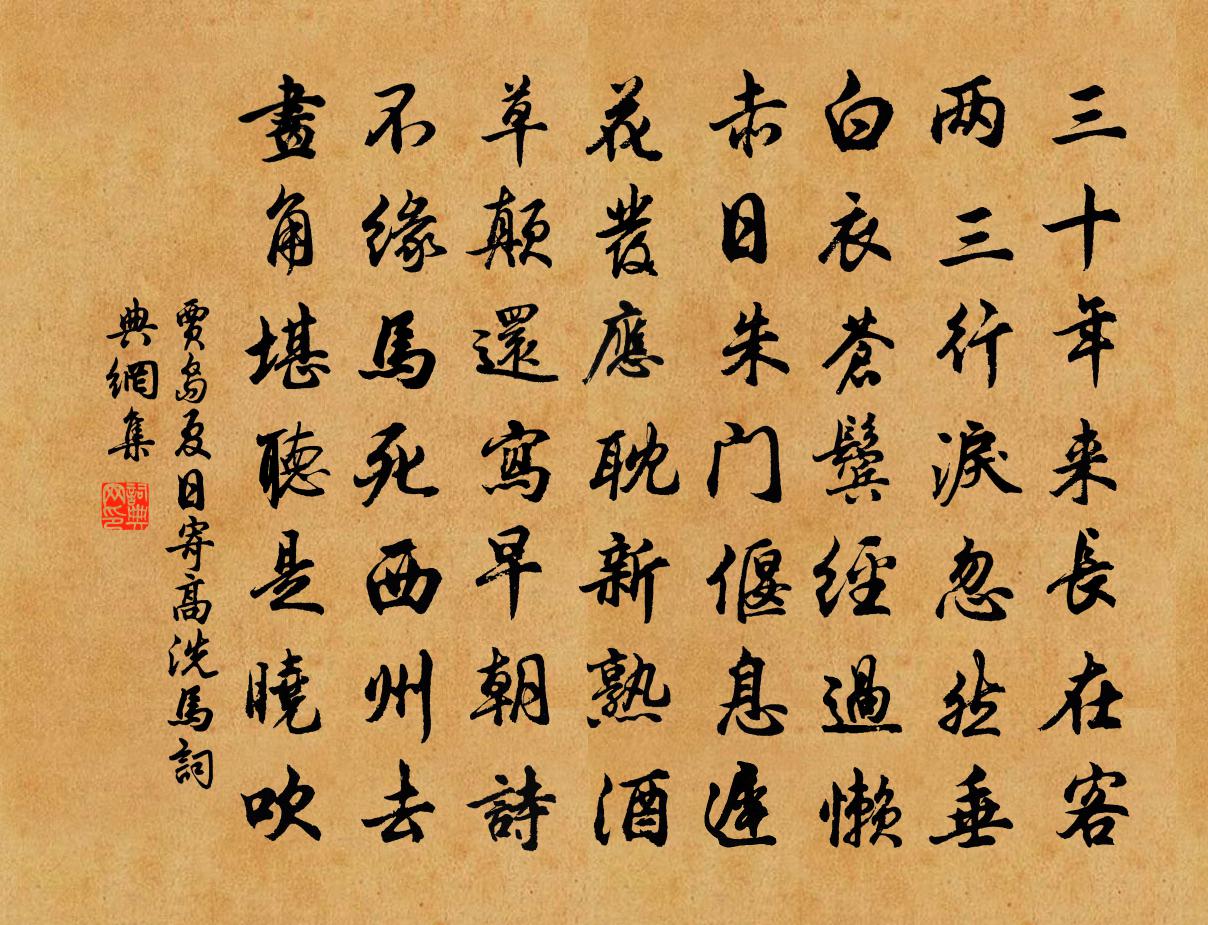 三十年来長在客
两三行淚忽然垂
白衣蒼鬓經過懶
赤日朱门偃息遲
花發應耽新熟酒
草顛還寫早朝詩
不緣馬死西州去
畫角堪聽是曉吹
賈島夏日寄高洗馬詞
典網集
詞典网印